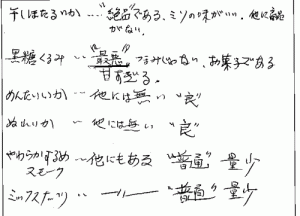 干しほたるいか…"絶品"である、ミソの味がいい、他に言葉
がない。
黒糖くるみ…"最悪"つまみじゃない、お菓子である
甘すぎる。
めんたいいか〜他には無い"良"
ぬれいか〜他には無い"良"
やわらかするめ〜他にもある"普通"量少
スモーク
ミックスナッツ〜 〃 "普通"量少